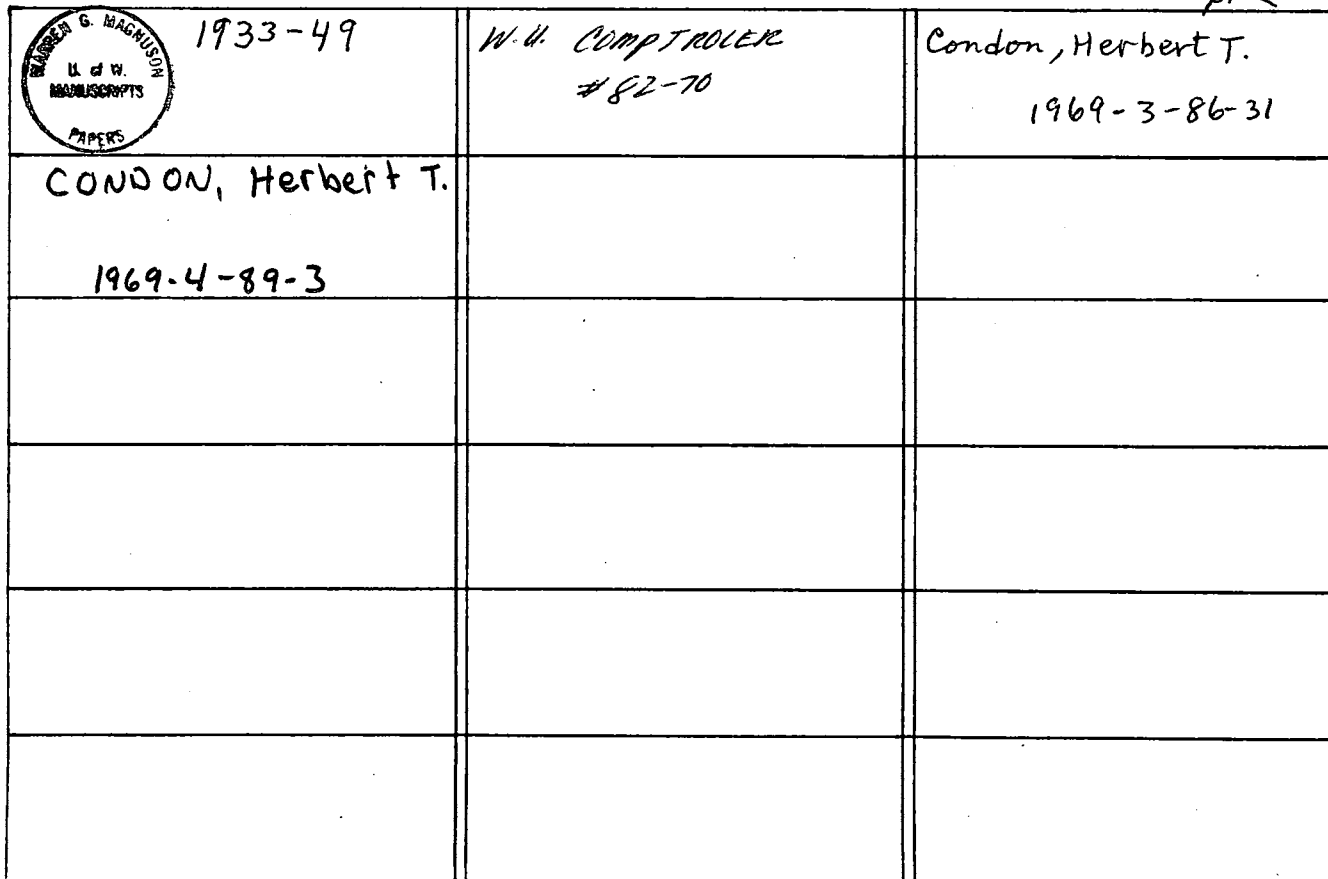 WARREN G. MAGNUSON
U. of W.
MANUSCRIPTS
PAPERS
1933-49
W.U. COMPTROLER
#82-70
Condon, Herbert T.
1969-3-86-31
CONDON, Herbert T.
1969-4-89-3